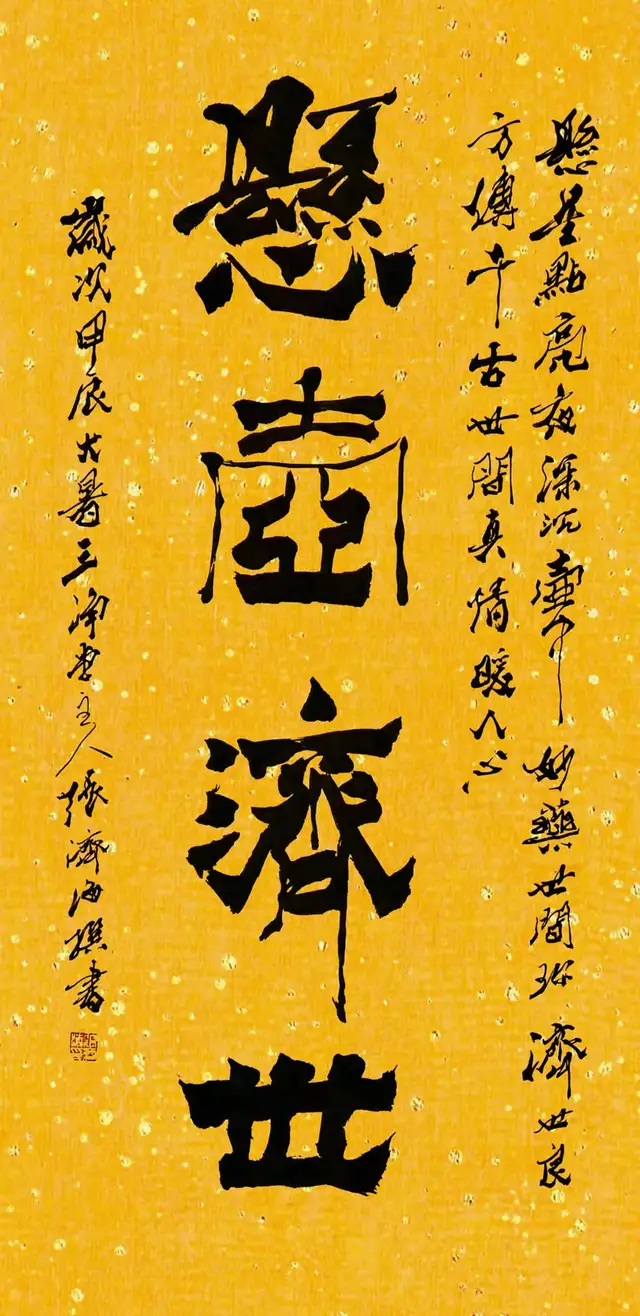 懸星點亮夜深沉壺中妙藥世間珍濟世良
方傳千古世間真情暖人心
懸壺濟世
歲次甲辰大暑三淨堂主人張濟海撰書